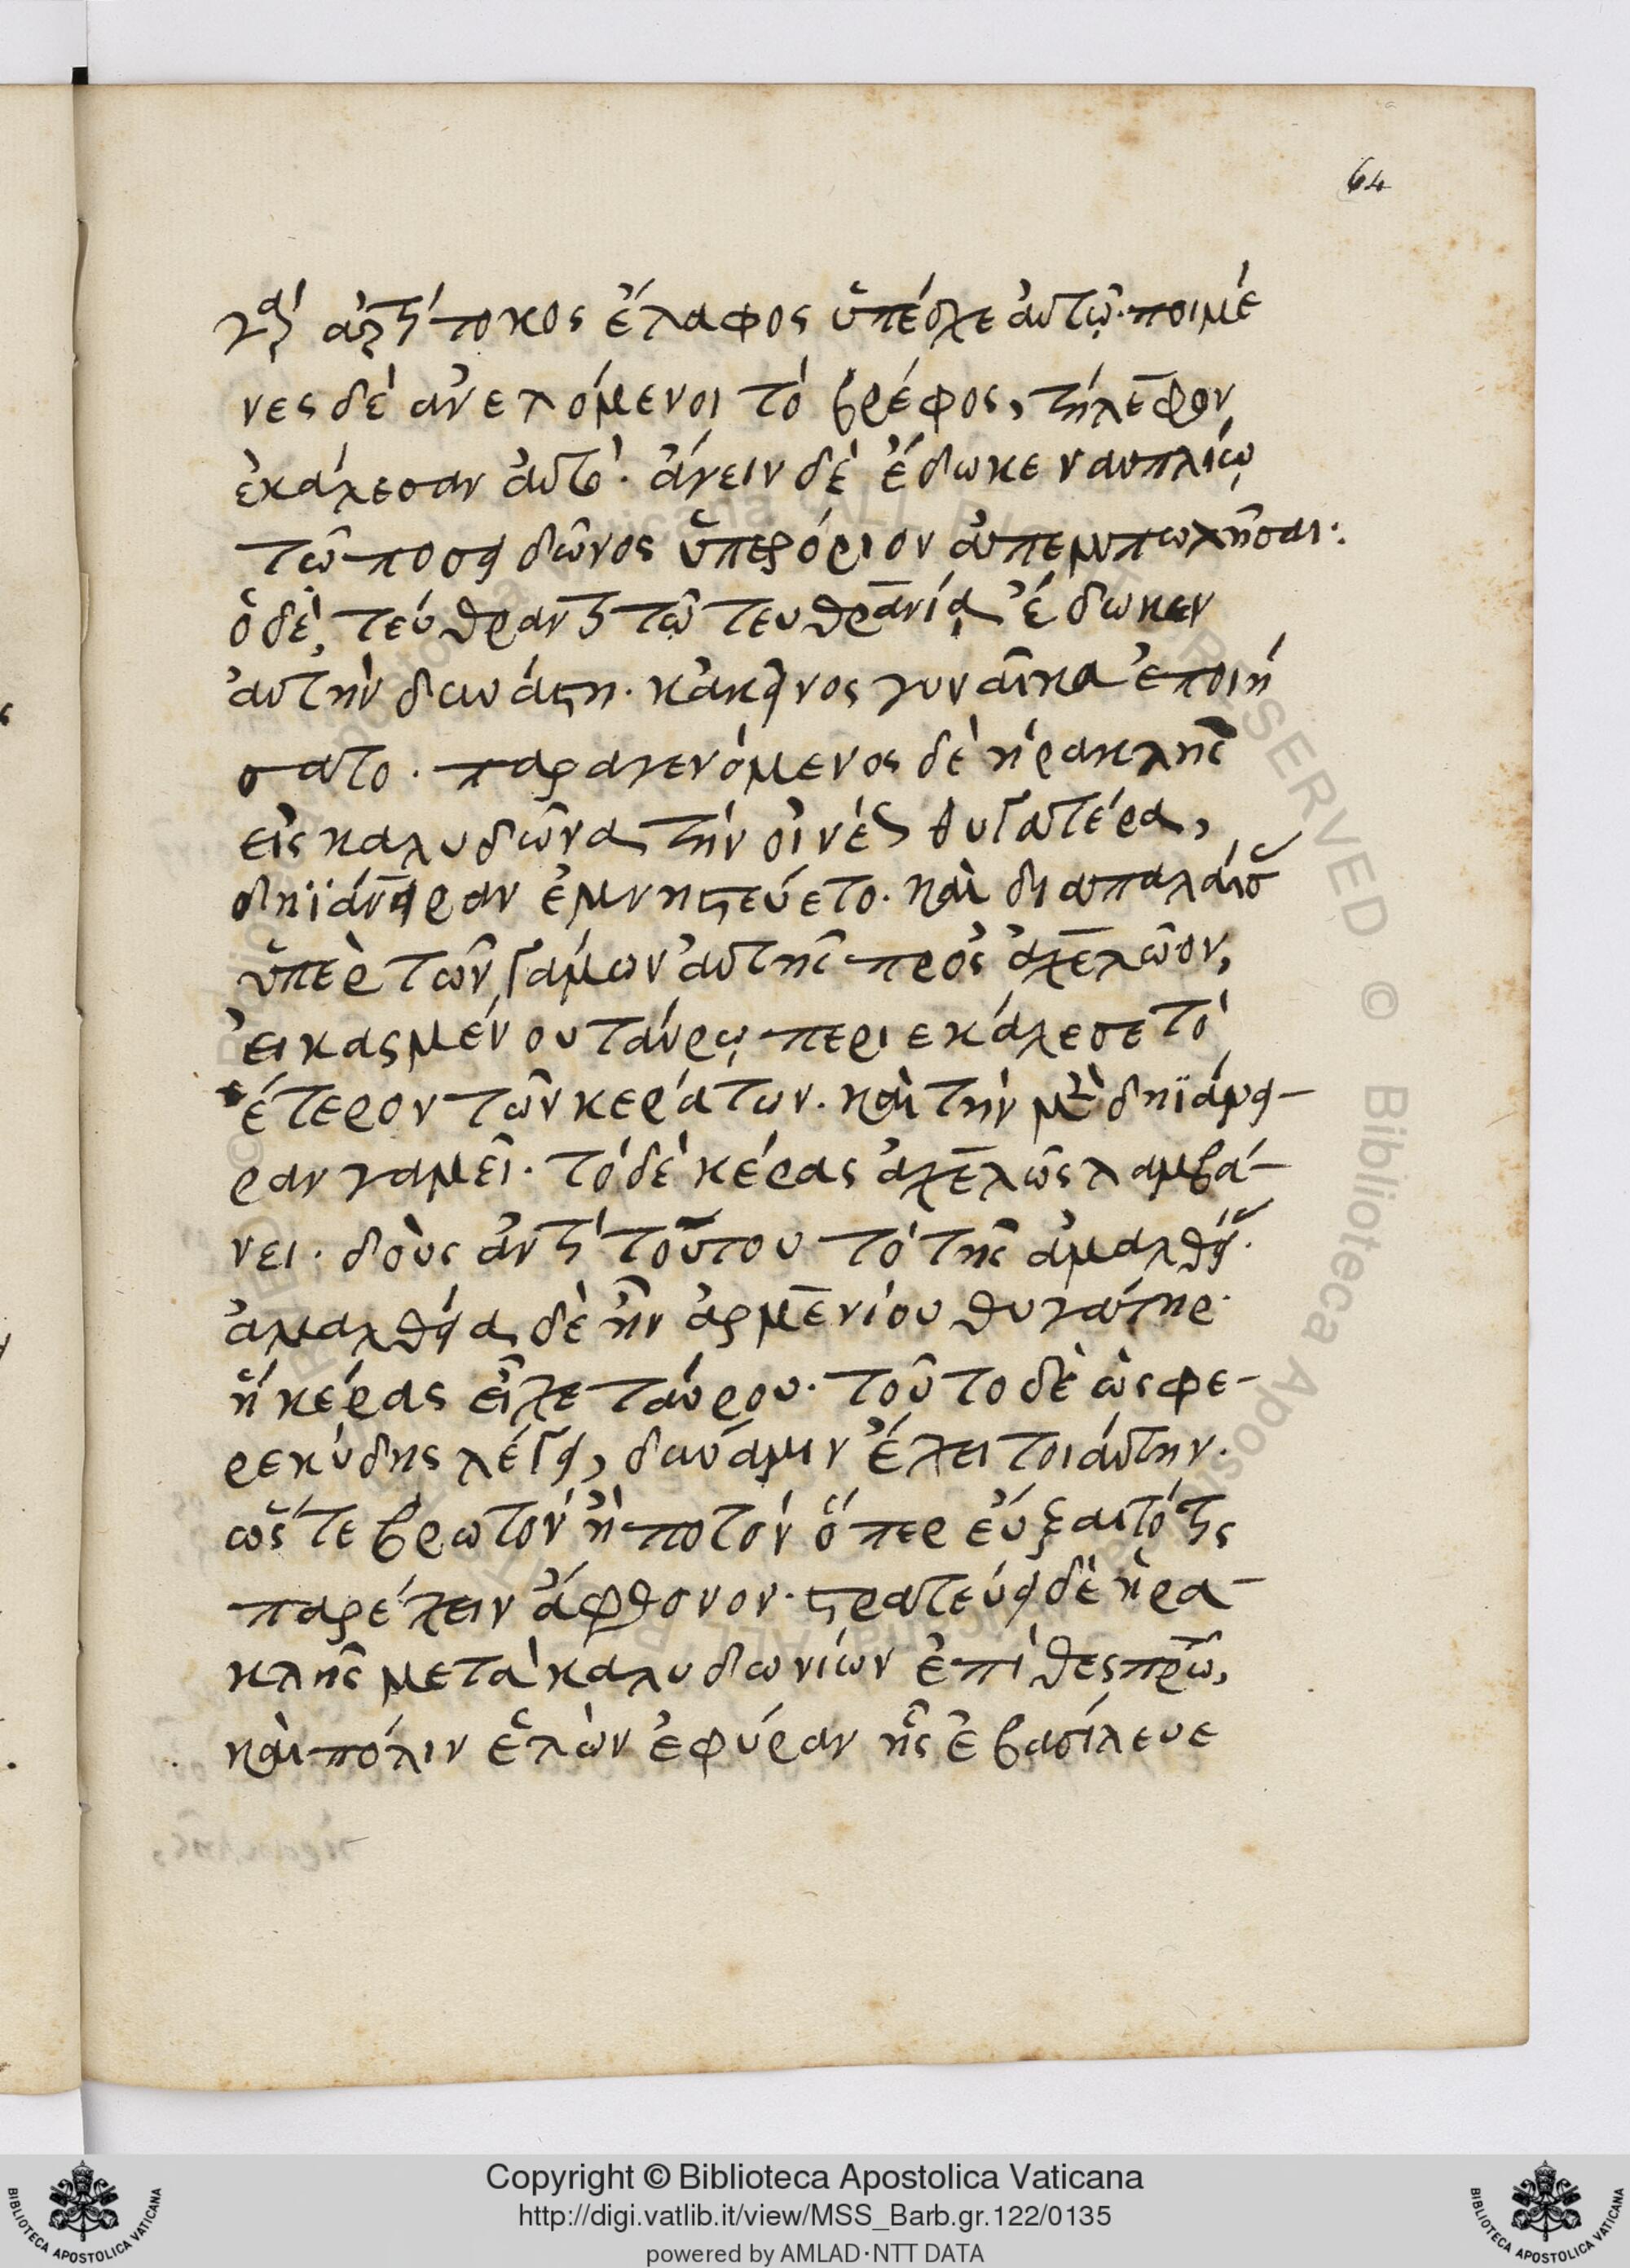 64
γὰρ ἀρτίτοκος ἔλαφος ὑπέσχε αὐτῷ· ποιμέ
νες δὲ ἀνελόμενοι τὸ βρέφος, τήλεφον
ἐκάλεσαν αὐτό· ἄγειν δὲ ἔδωκε ναυπλίῳ
τῶ ποσειδῶνος ὑπερόριον ἀπεμπωλῆσαι:
ὁ δὲ, τεύθραντι τῷ τευθρανίας ἔδωκεν
αὐτὴν δυνάστη· κἀκεῖνος γυναῖκα ἐποιή
σατο· παραγενόμενος δὲ ἡρακλῆς
εἰς καλυδῶνα τὴν οἰνέως θυγατέρα,
δηϊάνειραν ἐμνηστεύετο· καὶ διαπαλαίσ
ὑπὲρ τῶν γάμων αὐτῆς πρὸς ἀχελῶον,
εἰκασμένου ταύρῳ περιεκάλεσε τὸ
ἕτερον τῶν κεράτων· καὶ τὴν μὲν δηϊάνει-
ραν γαμεῖ· τὸ δὲ κέρας ἀχελῶς λαμβά-
νει· δοὺς ἀντὶ τούτου τὸ τῆς ἀμαλθείας·
ἀμαλθεία δὲ ἦν ἁρμενίου θυγάτηρ·
ἣ κέρας εἶχε ταύρου· τοῦτο δὲ ὡς φε-
ρεκύδης λέγει, δύναμιν ἔχει τοιαύτην·
ὥστε βρωτὸν ἢ ποτὸν ὅπερ εὔξαιτό τις
παρέχειν ἄφθονον· στρατεύει δὲ ἡρα-
κλῆς μετὰ καλυδωνίων ἐπὶ θεσπρω,
καὶ πόλιν ἑλὼν ἐφύραν ἧς ἐβασίλευε
Copyright © Biblioteca Apostolica Vaticana
http://digi.vatlib.it/view/MSS_Barb.gr.122/0135
powered by AMLAD·NTT DATA